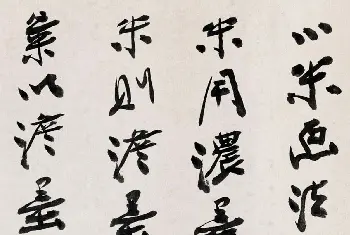 小米画法
米用濃墨
米則淡墨
以淡墨